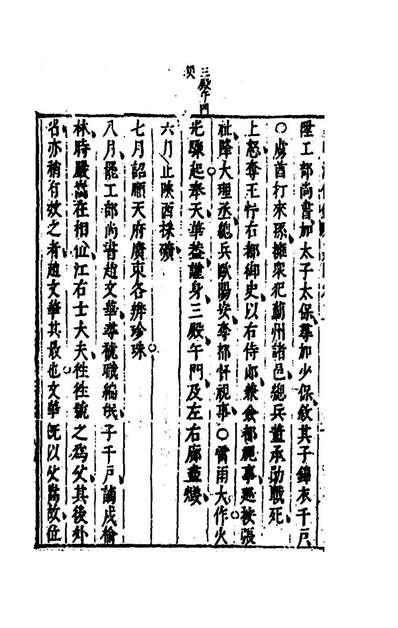 三殿午門
災
陞工部尚書加太子太保尋加少保敘其子錦衣千戶
○虜酋打來孫擁眾犯薊州諸邑總兵蔣承勛戰死
上怒奪王忬右都御史以右侍郎兼僉都視事趣械張
祉降大理丞總兵歐陽安奪都督視事○雷雨大作火
光驟起奉天華蓋謹身三殿午門及左右廊盡燬
六月止陝西採礦
七月詔順天府廣東各辦珍珠
八月罷工部尚書趙文華尋褫職編氓子千戶謫戍榆
林時嚴嵩在相位江右士大夫往往號之為父其後外
省亦稍有效之者趙文華其最也文華既以父嵩故位